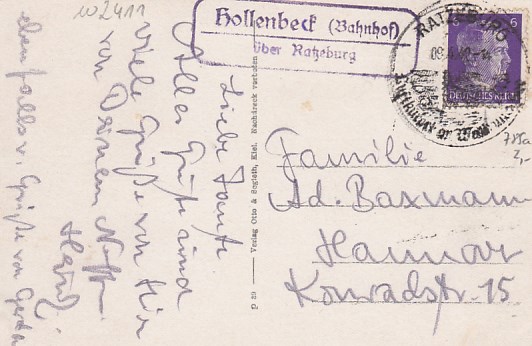 w2411
Hollenbeck (Bahnhof)
über Ratzeburg
RATZEBURG
6
DEUTSCHES REICH
Liebe Tante
Alles Gute und
viele Grüße von Hir
von Deinem Neff.
ebenfalls v. Grüße von Gerda
p 30 — Verlag Otto & Sogteih, Kiel. Nachdruck verboten
Familie
Ad. Baxmann
Hannover
Konradstr. 15